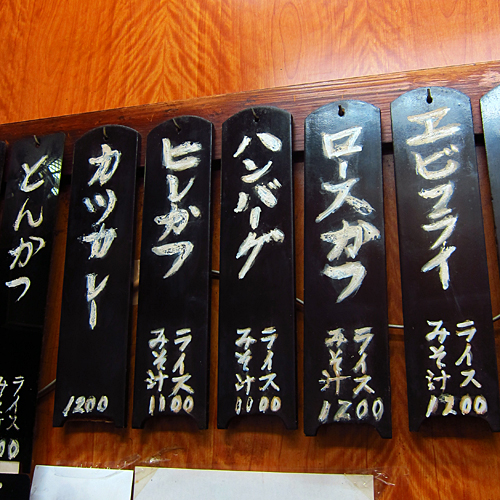 エビフライ
ライス
みそ汁
1200
ロースかつ
ライス
みそ汁
1200
ハンバーグ
ライス
みそ汁
1100
ヒレかつ
ライス
みそ汁
1100
カツカレー
1200
とんかつ
ライス
みそ汁